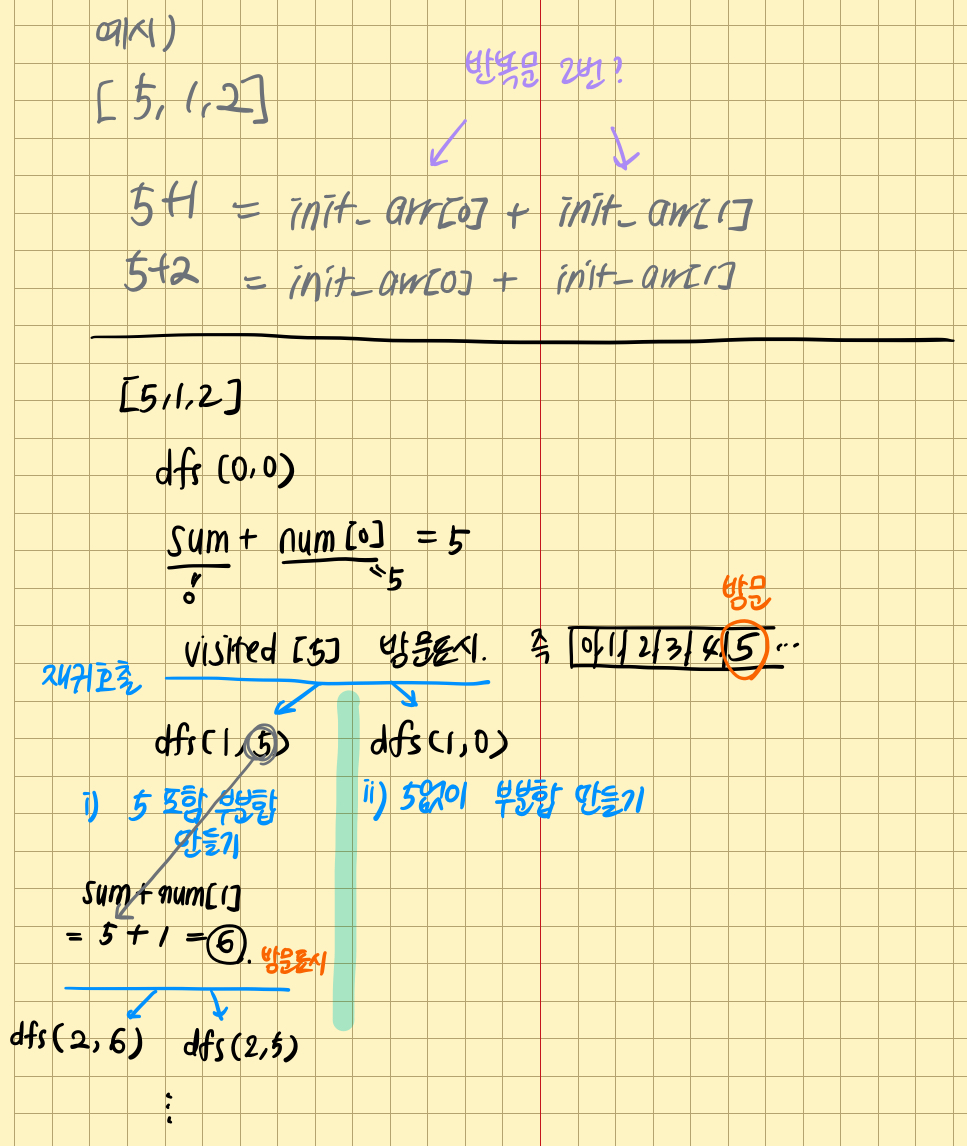 예시)
반복문 2번?
[5, 1, 2]
5+1 = init_arr[0] + init_arr[1]
5+2 = init_arr[0] + init_arr[1]
[5,1,2]
dfs (0,0)
sum + num[0] = 5
0 =5
방문
visited [5] 방문표시. 즉 0, 1, 2, 3, 4, 5 ...
재귀호출
dfs(1, 5) dfs(1,0)
i) 5 포함 부분합 ii) 5없이 부분합 만들기
만들기
sum + num[1]
= 5 + 1 = 6. 방문표시
dfs(2, 6) dfs(2,5)
⋮